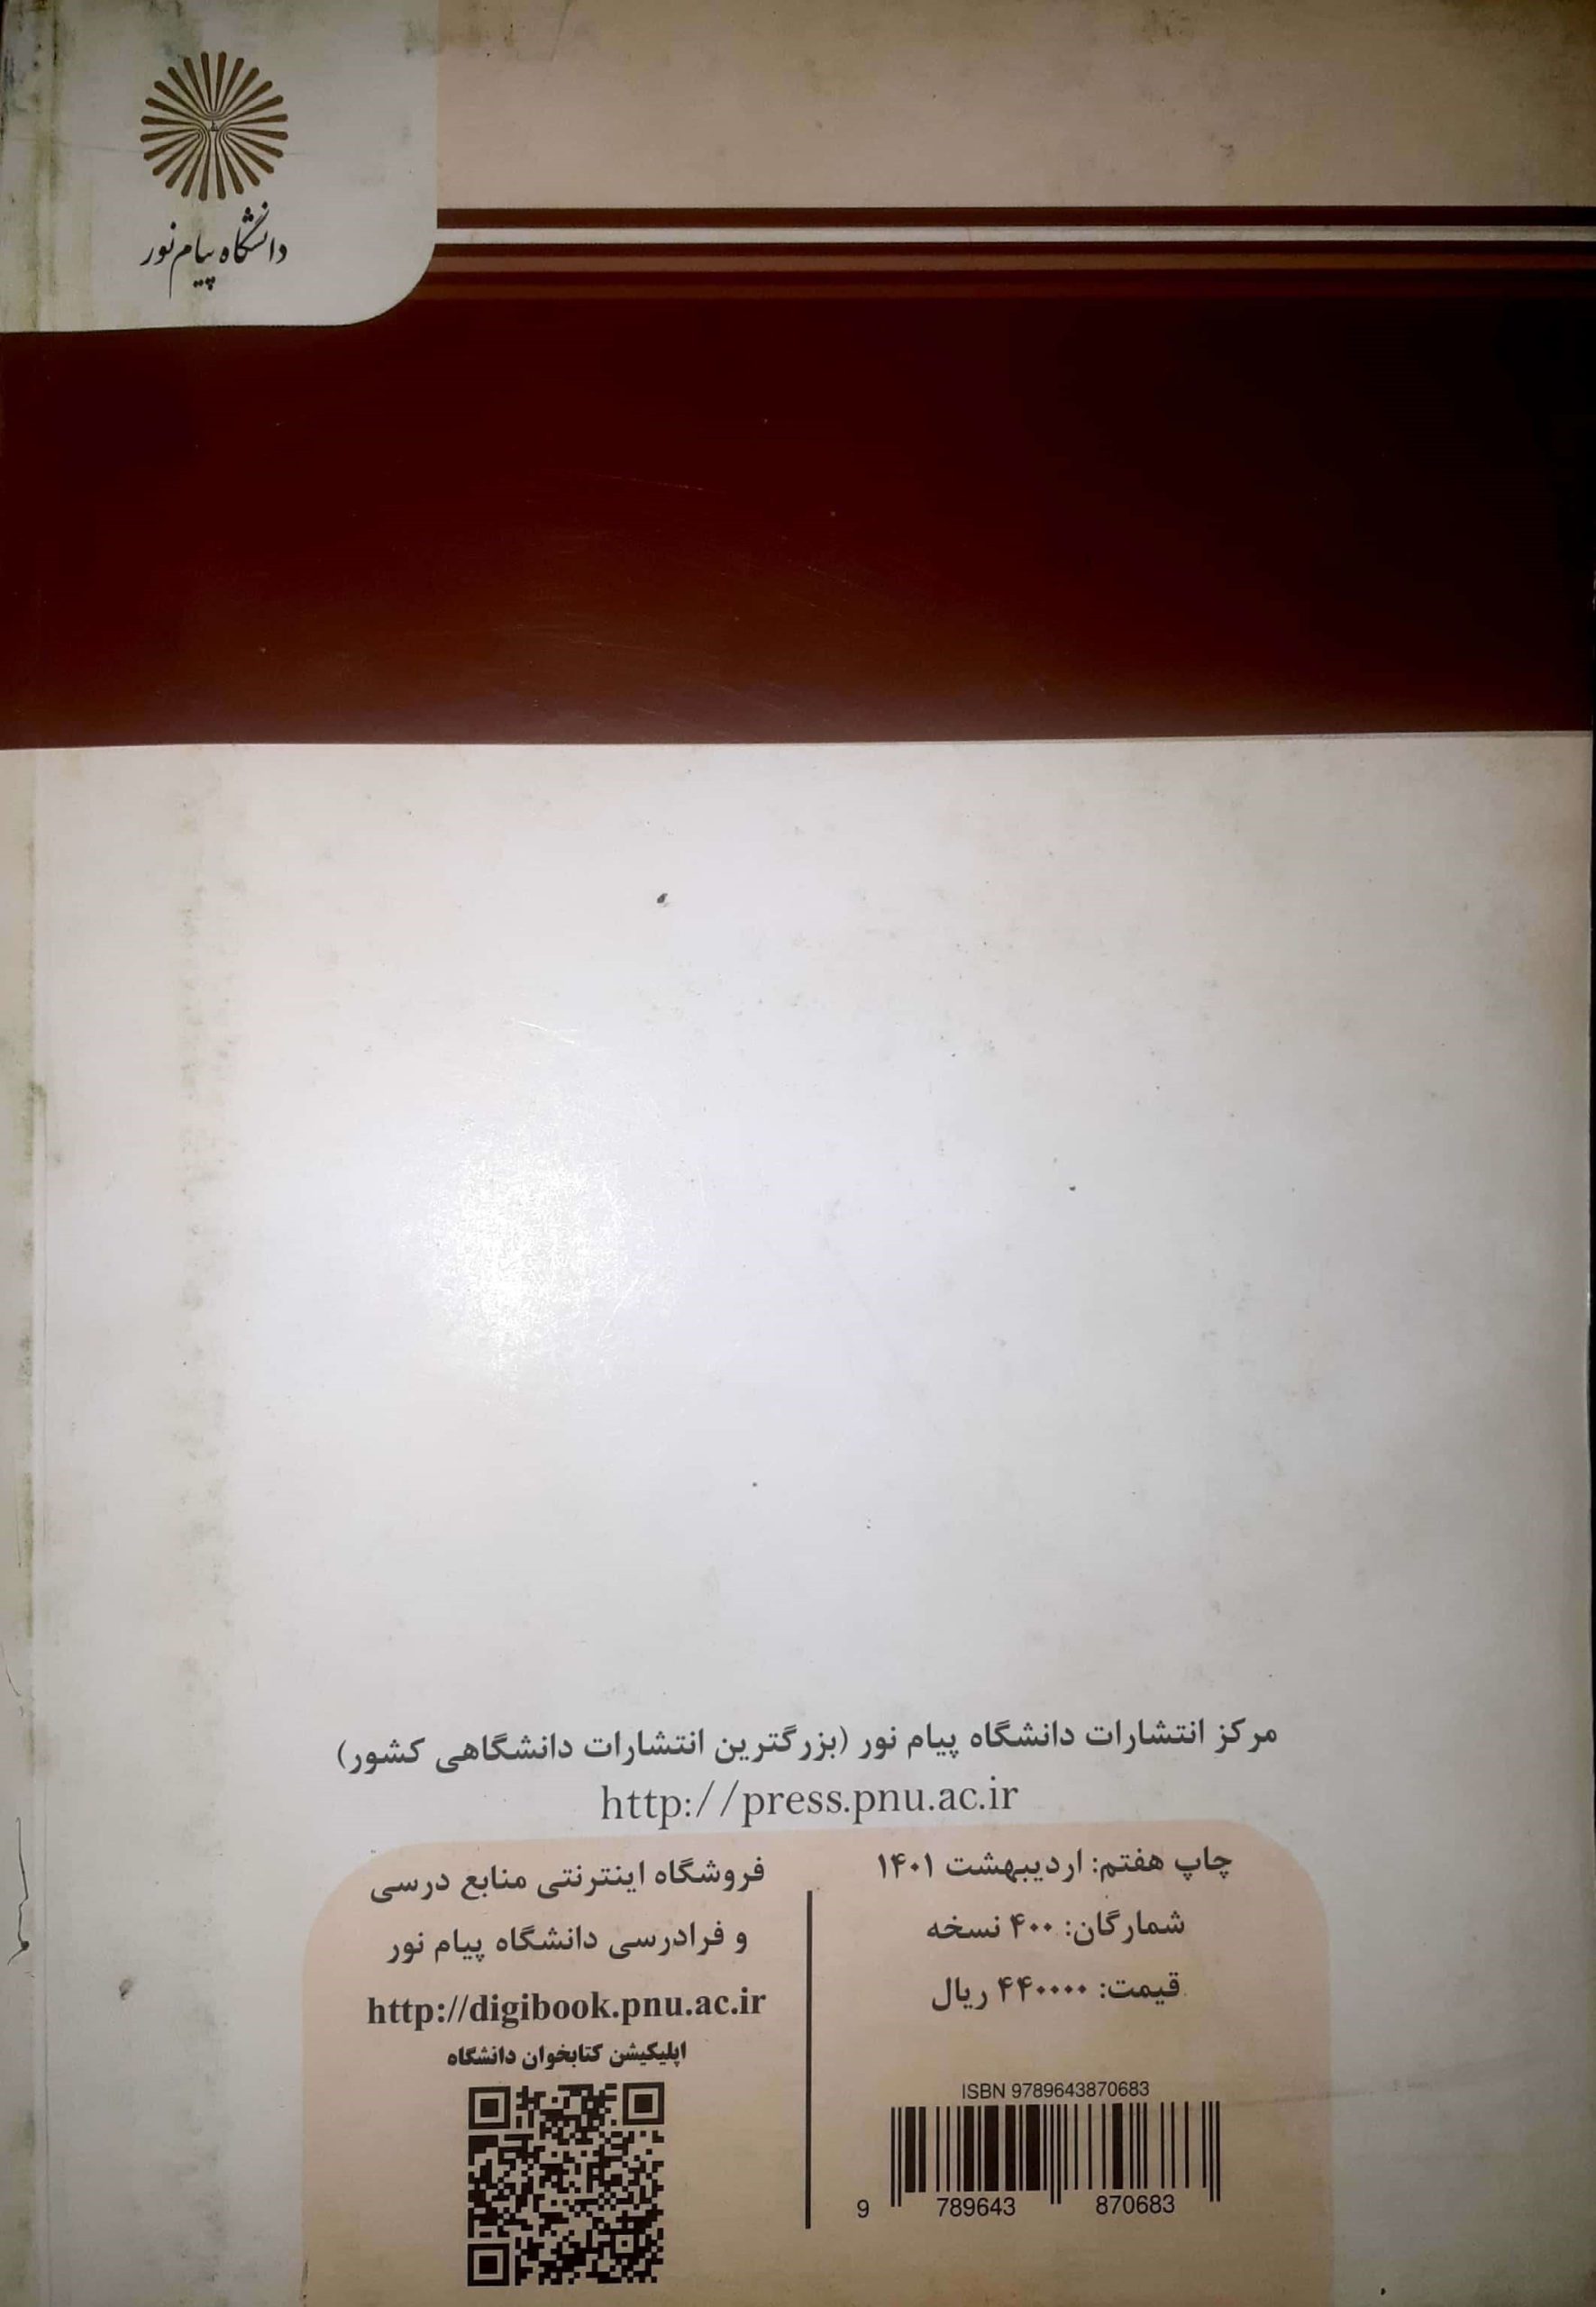 دانشگاه پیام نور
مرکز انتشارات دانشگاه پیام نور (بزرگترین انتشارات دانشگاهی کشور)
http://press.pnu.ac.ir
چاپ هفتم: اردیبهشت ۱۴۰۱
شمارگان: ۴۰۰ نسخه
قیمت: ۴۴۰۰۰۰ ریال
ISBN 9789643870683
9 789643 870683
فروشگاه اینترنتی منابع درسی
و فرادرسی دانشگاه پیام نور
http://digibook.pnu.ac.ir
اپلیکیشن کتابخوان دانشگاه